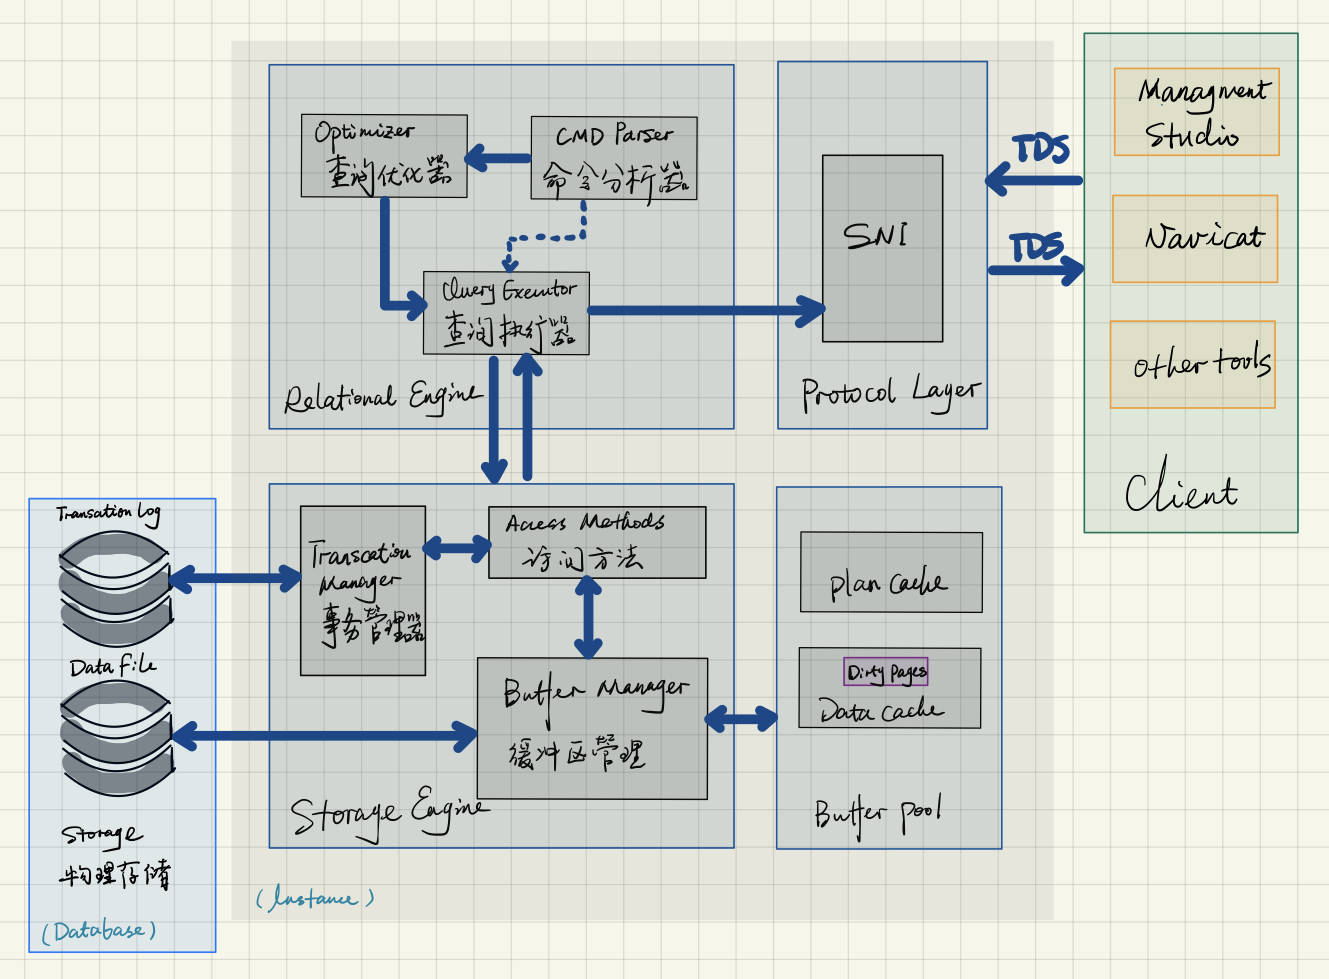 Optimizer
查询优化器
CMD Parser
命令分析器
Query Executor
查询执行器
Relational Engine
SNI
Protocol Layer
TDS
TDS
Managment
Studio
Navicat
other tools
Client
Transation Log
Data File
Storage
物理存储
(Database)
Transcation
Manager
事务管理器
Access Methods
访问方法
Buffer Manager
缓冲区管理
Storage Engine
plan cache
Dirty Pages
Data cache
Buffer pool
(Instance)